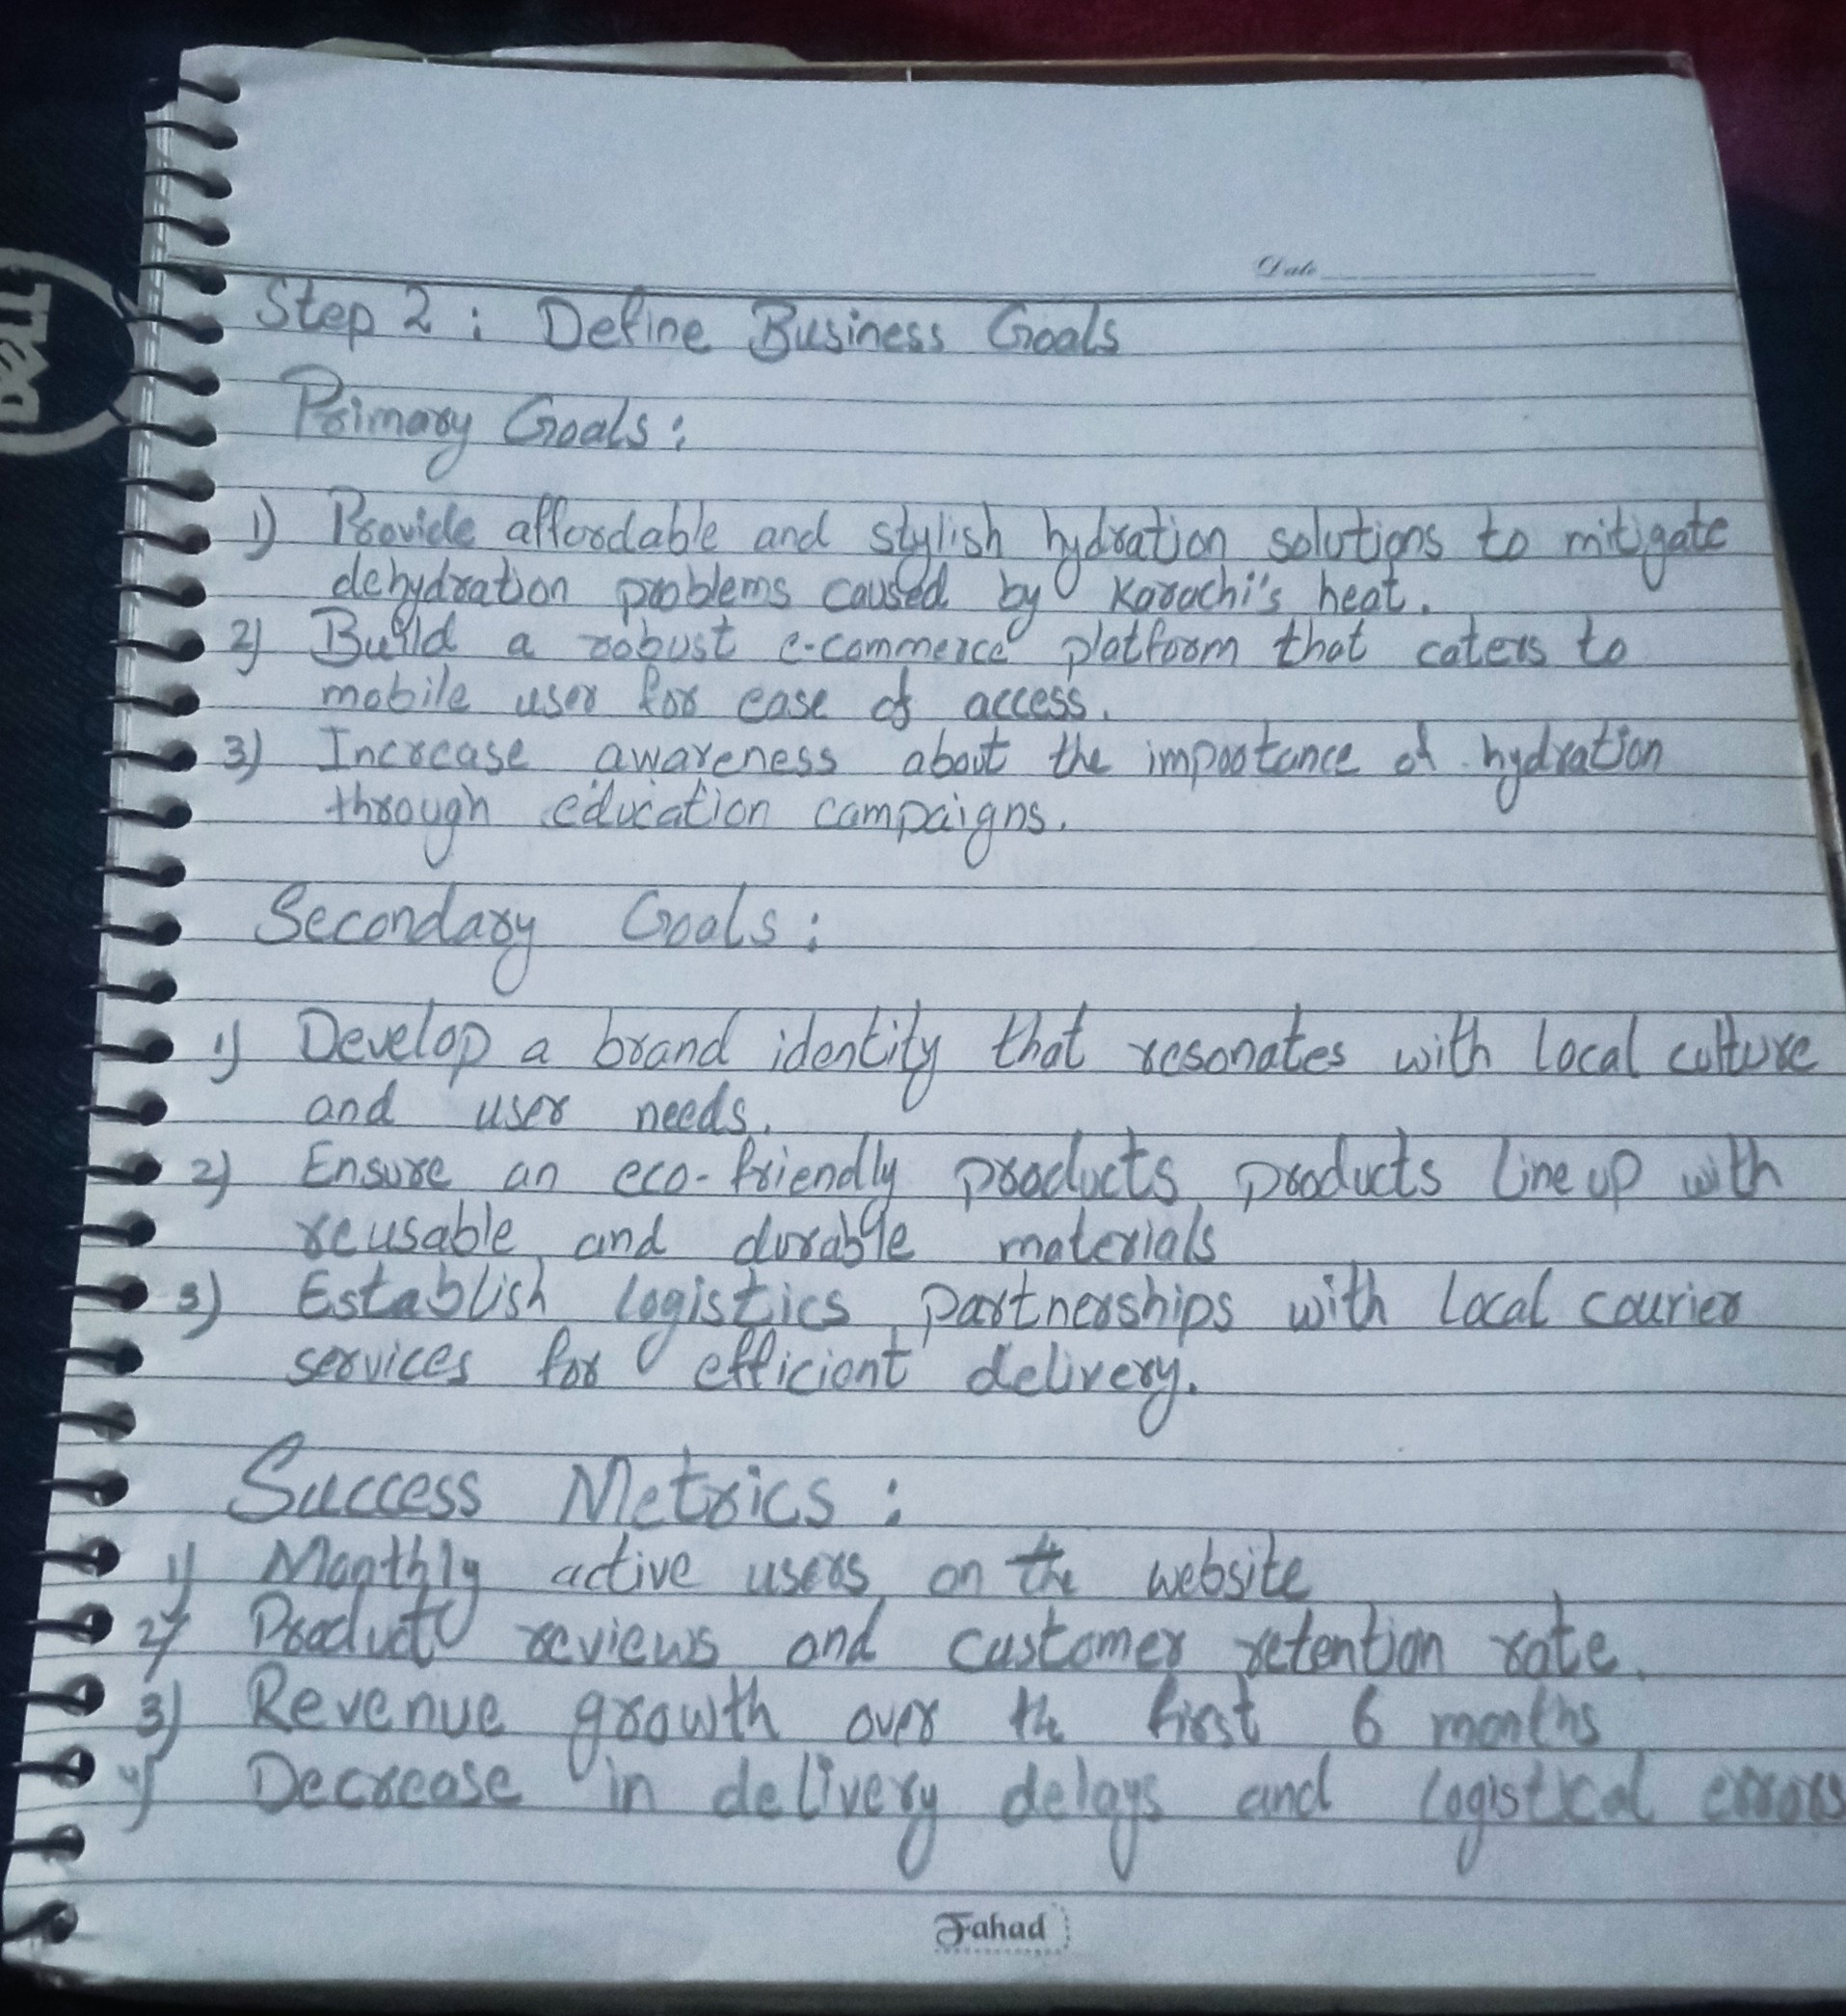 Date
Step 2 : Define Business Goals
Primary Goals :
1) Provide affordable and stylish hydration solutions to mitigate
dehydration problems caused by Karachi's heat.
2) Build a robust e-commerce platform that caters to
mobile user for ease of access.
3) Increase awareness about the importance of hydration
through education campaigns.
Secondary Goals :
1) Develop a brand identity that resonates with local culture
and user needs.
2) Ensure an eco-friendly products products line up with
reusable and durable materials
3) Establish logistics partnerships with local courier
services for efficient delivery.
Success Metrics :
1) Monthly active users on the website
2) Product reviews and customer retention rate.
3) Revenue growth over the first 6 months
4) Decrease in delivery delays and logistical errors
Fahad
DELL